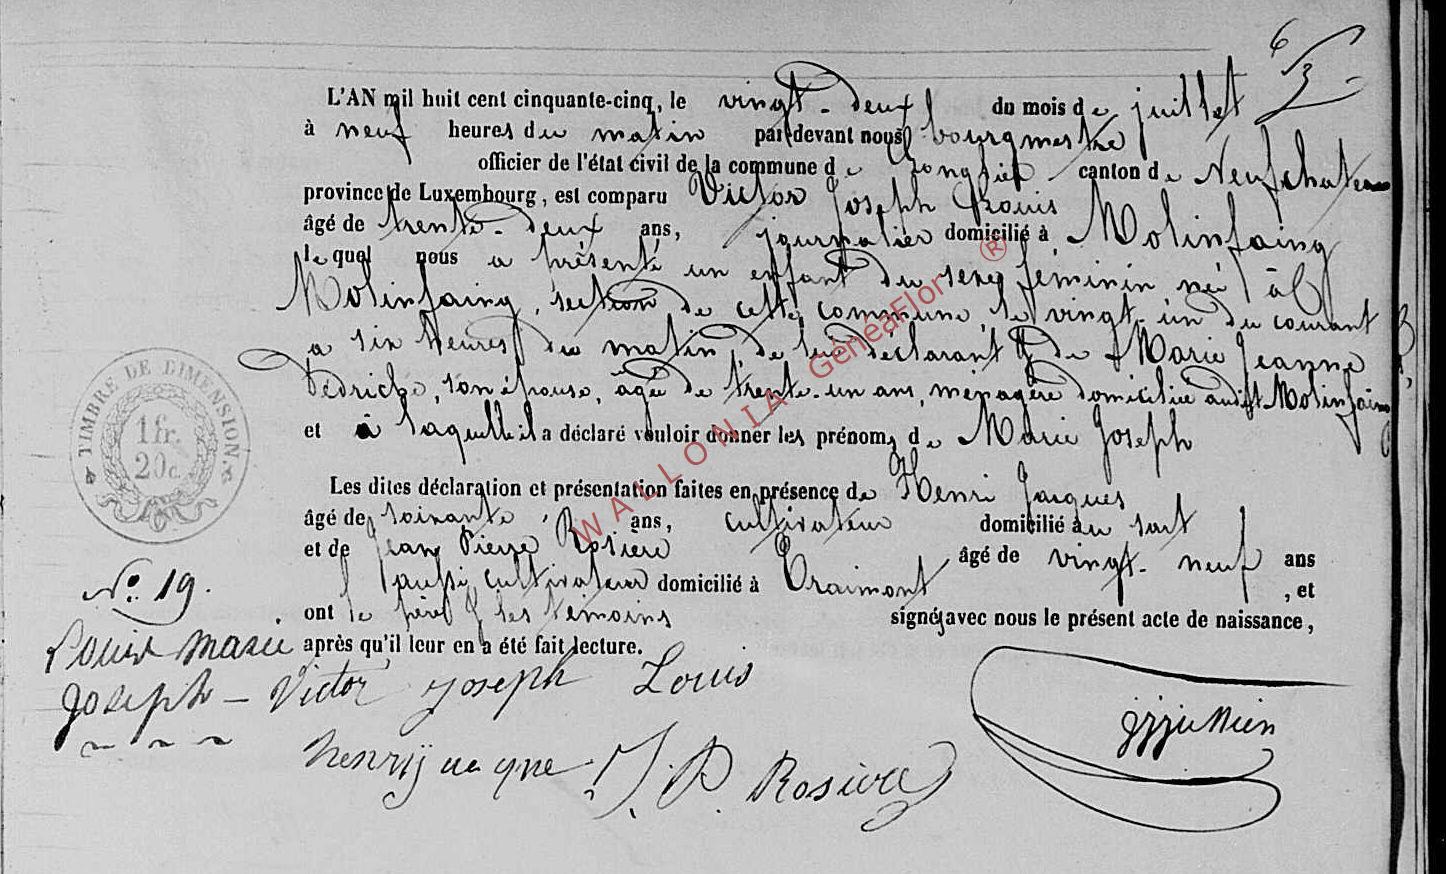 6/3
L'AN mil huit cent cinquante-cinq, le vingt-deux du mois de juillet
à neuf heures du matin par-devant nous bourgmestre
officier de l'état civil de la commune de Longlier canton de Neufchateau
province de Luxembourg, est comparu Victor Joseph Louis
âgé de trente-deux ans, journalier domicilié à Molinfaing
lequel nous a présenté un enfant du sexe féminin né à
Molinfaing, section de cette commune, le vingt-un du courant
a six heures du matin, de lui déclarant & de Marie Jeanne
Dedriche, son épouse, âgée de trente-un ans, ménagère domiciliée audit Molinfaing
et à laquelle il a déclaré vouloir donner les prénoms de Marie Joseph
Les dites déclaration et présentation faites en présence de Henri Jacques
âgé de soixante ans, cultivateur domicilié au sart
et de Jean Pierre Rosière âgé de vingt-neuf ans
aussi cultivateur domicilié à Traimont, et
ont le père & les témoins signés avec nous le présent acte de naissance,
après qu'il leur en a été fait lecture.
TIMBRE DE DIMENSION
1 fr.
20 c.
No. 19.
Louis Marie
Joseph -
Victor Joseph Louis
henry jacque J. P. Rosière
WALLONIA GeneaFlor ®